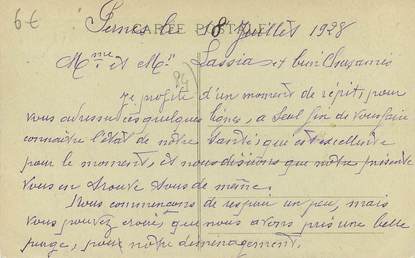 6€
CARTE POSTALE
Pernes le 8 Juillet 1928
Mme et Mr Lassia et bien Chers amis
Je profite d'un moment de répit, pour
vous adresser ces quelques lignes, a seul fin de vous faire
connaitre l'état de nôtre santés qui est excellente
pour le moment, et nous désirons que nôtre présente
vous en trouve tous de même.
Nous commençons de respirer un peu, mais
vous pouvez croire que nous avons pris une belle
purge, pour notre déménagement.